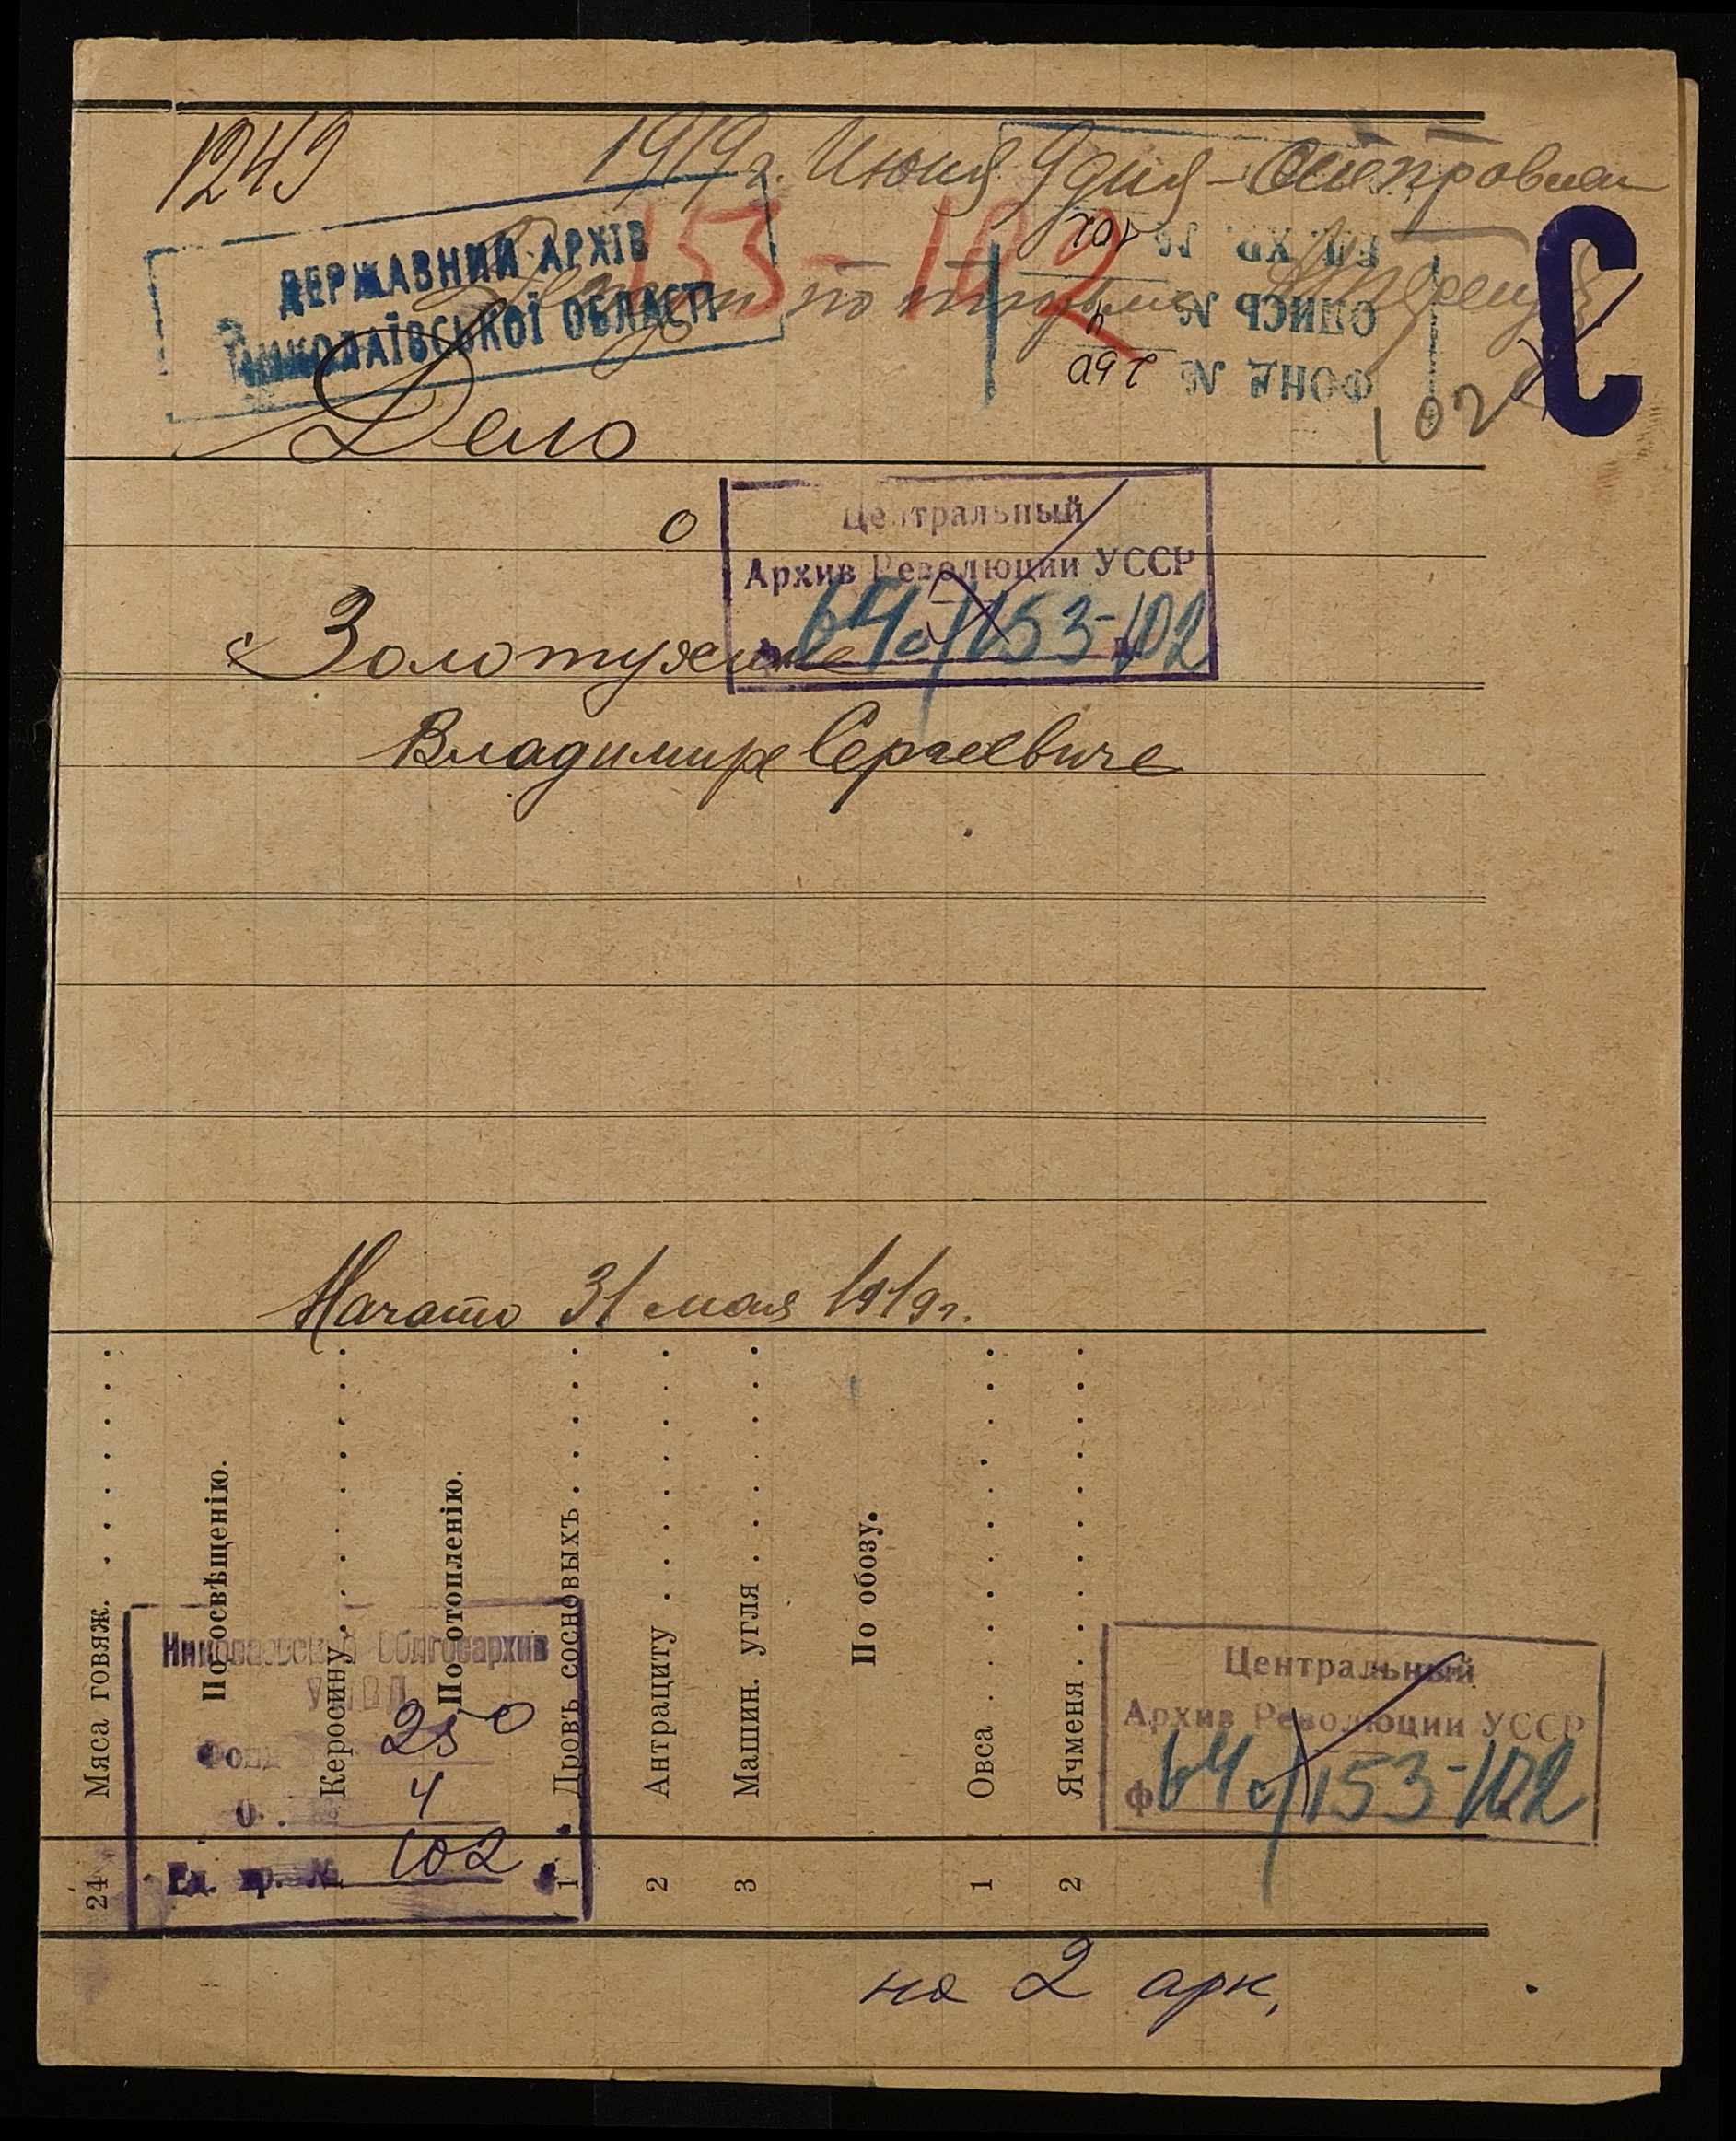 1249
1919 г. Июня 9 дня –
153–102
ДЕРЖАВНИЙ АРХІВ
МИКОЛАЇВСЬКОЇ ОБЛАСТІ
ФОНД №
ОПИСЬ № 4
ЕД. ХР. № 102
102
С
Дело
о
Центральный
Архив Революции УССР
153-102
Владимире Сергеевиче
Начато 31 мая 1919 г.
24 Мяса говяж.
По освѣщенію.
Керосину
По отопленію.
1 Дровъ сосновыхъ
2 Антрациту
3 Машин. угля
По обозу.
1 Овса
2 Ячменя
Николаевский Облгосархив
УМВД
Фонд 250
О. 4
Ед. хр. № 102
Центральный
Архив Революции УССР
ф 153-102
на 2 арк.